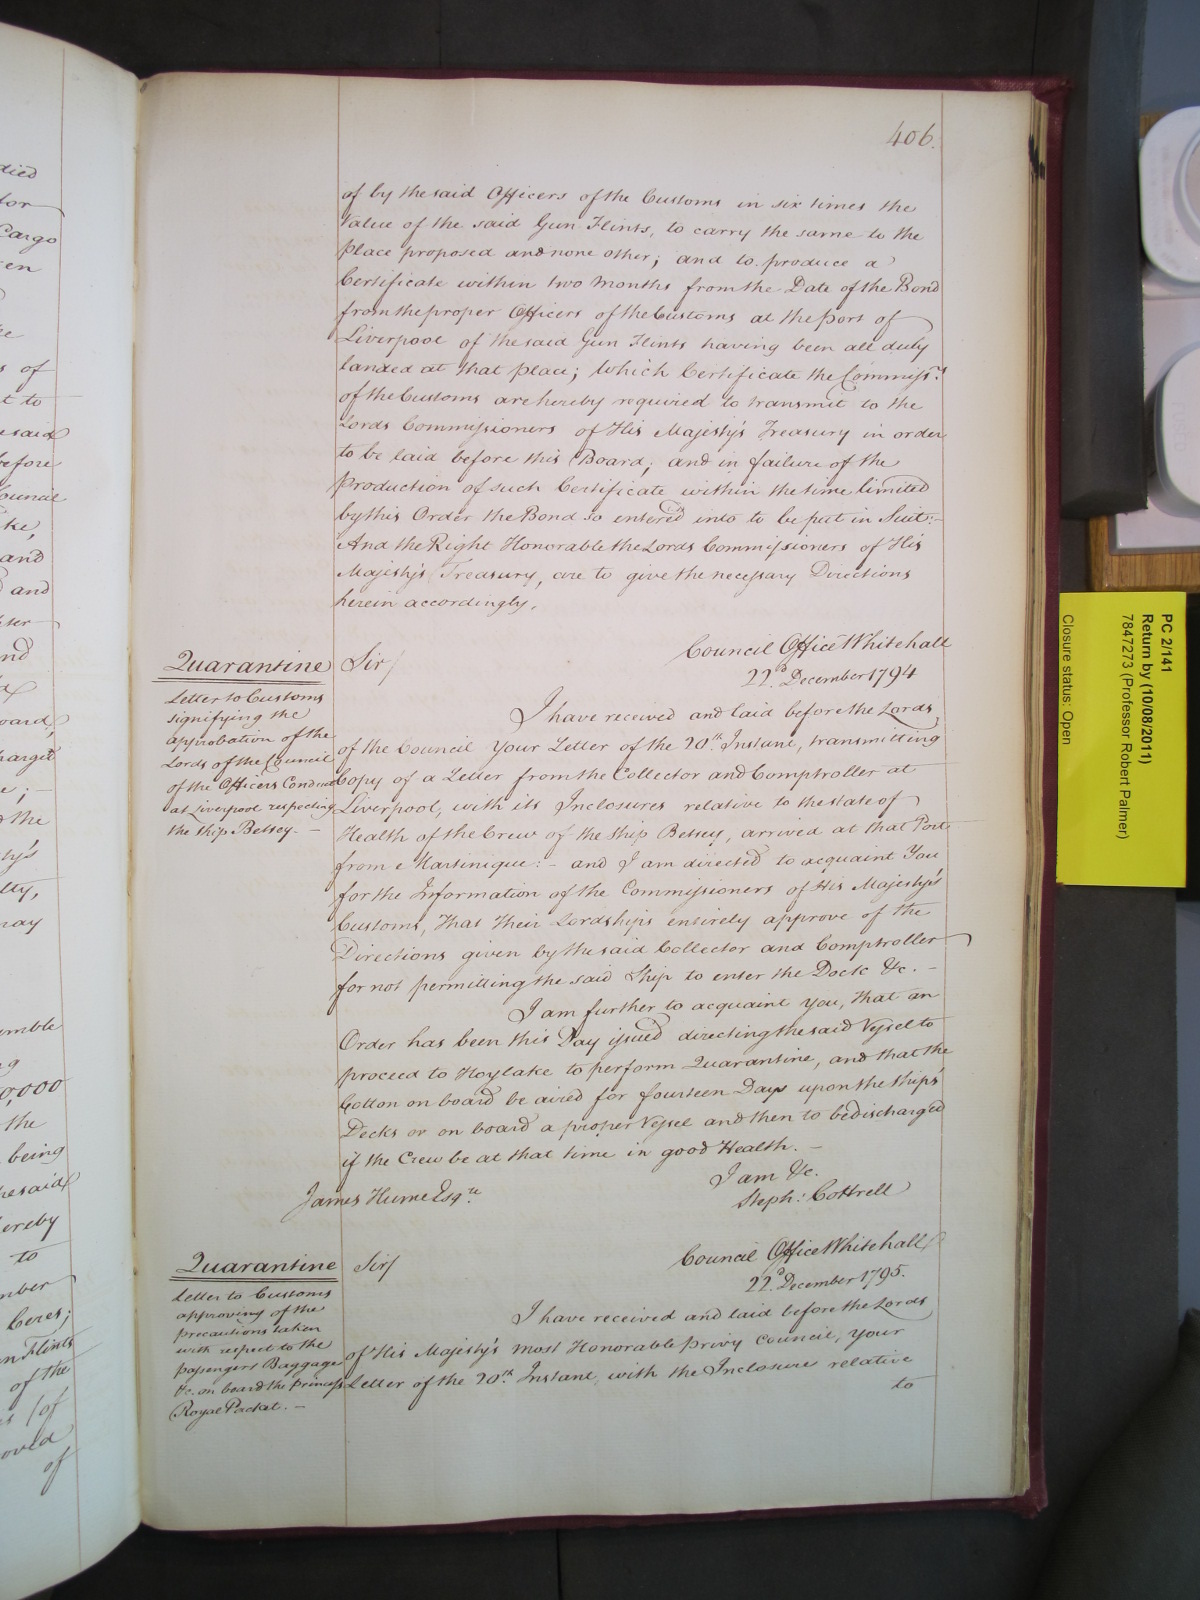 406.
of by the said Officers of the Customs in six times the
Value of the said Gun Flints, to carry the same to the
Place proposed and none other; and to produce a
Certificate within two Months from the Date of the Bond
from the proper Officers of the Customs at the Port of
Liverpool of the said Gun Flints having been all duly
landed at that Place; Which Certificate the Commiss.rs
of the Customs are hereby required to transmit to the
Lords Commissioners of His Majesty's Treasury in order
to be laid before this Board; and in failure of the
Production of such Certificate within the time limited
by this Order the Bond so entered into to be put in Suit:-
And the Right Honorable the Lords Commissioners of His
Majesty's Treasury, are to give the necessary Directions
herein accordingly.
Quarantine
Letter to Customs
signifying the
approbation of the
Lords of the Council
of the Officers Conduct
at Liverpool respecting
the Ship Betsey. -
Sir/
Council Office Whitehall
22.d December 1794
I have received and laid before the Lords
of the Council Your Letter of the 20.th Instant, transmitting
Copy of a Letter from the Collector and Comptroller at
Liverpool, with its Inclosures relative to the state of
Health of the Crew of the Ship Betsey, arrived at that Port
from Martinique:- and I am directed to acquaint You
for the Information of the Commissioners of His Majesty's
Customs, That Their Lordships entirely approve of the
Directions given by the said Collector and Comptroller
for not permitting the said Ship to enter the Dock &c. -
I am further to acquaint you, that an
Order has been this Day issued directing the said Vessel to
proceed to Hoylake to perform Quarantine, and that the
Cotton on board be aired for fourteen Days upon the Ship's
Decks or on board a proper Vessel and then to be discharged
if the Crew be at that time in good Health. -
I am &c.
Steph: Cottrell
James Hume Esq.re
Quarantine
Letter to Customs
approving of the
precautions taken
with respect to the
passengers Baggage
&c. on board the Princess
Royal Packet. -
Sir/
Council Office Whitehall
22.d December 1795.
I have received and laid before the Lords
of His Majesty's most Honorable privy Council, your
Letter of the 20.th Instant, with the Inclosure relative
to
PC 2/141
Return by (10/08/2011)
7847273 (Professor Robert Palmer)
Closure status: Open
died
Cargo
of
to
before
Council
and
and
the
may
0,000
the
being
to
Ceres;
of the
of